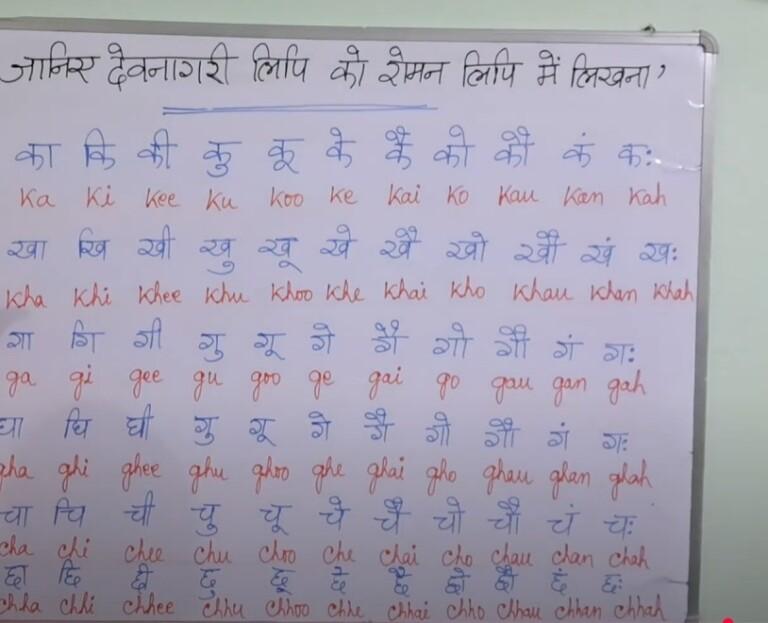 जानिए देवनागरी लिपि को रोमन लिपि में लिखना'
का कि की कु कू के कै को कौ कं कः
Ka Ki Kee Ku Koo Ke Kai Ko Kau Kan Kah
खा खि खी खु खू खे खै खो खौ खं खः
Kha Khi Khee Khu Khoo Khe Khai Kho Khau Khan Khah
गा गि गी गु गू गे गै गो गौ गं गः
ga gi gee gu goo ge gai go gau gan gah
घा घि घी गु गू गे गै गो गौ गं गः
gha ghi ghee ghu ghoo ghe ghai gho ghau ghan ghah
चा चि ची चु चू चे चै चो चौ चं चः
cha chi chee chu choo che chai cho chau chan chah
छा छि छी छु छू छे छै छो छौ छं छः
chha chhi chhee chhu chhoo chhe chhai chho chhau chhan chhah